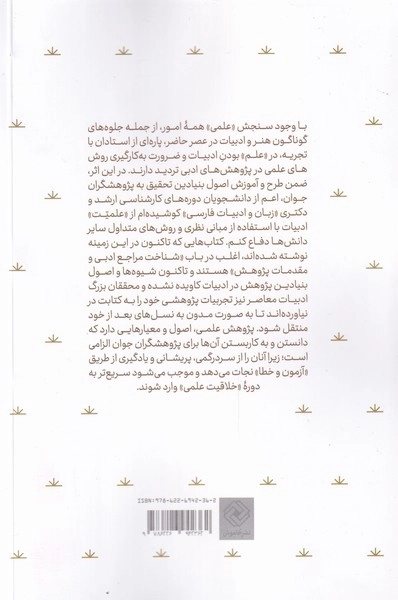 با وجود سنجش «علمی» همهٔ امور، از جمله جلوه‌های
گوناگون هنر و ادبیات در عصر حاضر، پاره‌ای از استادان با
تجربه، در «علم» بودنِ ادبیات و ضرورت به‌کارگیری روش
های علمی در پژوهش‌های ادبی تردید دارند. در این اثر،
ضمن طرح و آموزش اصول بنیادین تحقیق به پژوهشگران
جوان، اعم از دانشجویان دوره‌های کارشناسی ارشد و
دکتری «زبان و ادبیات فارسی» کوشیده‌ام از «علمیّت»
ادبیات با استفاده از مبانی نظری و روش‌های متداول سایر
دانش‌ها دفاع کنم. کتاب‌هایی که تاکنون در این زمینه
نوشته شده‌اند، اغلب در باب «شناخت مراجع ادبی و
مقدمات پژوهش» هستند و تاکنون شیوه‌ها و اصول
بنیادین پژوهش در ادبیات کاویده نشده و محققان بزرگ
ادبیات معاصر نیز تجربیات پژوهشی خود را به کتابت در
نیاورده‌اند تا به صورت مدون به نسل‌های بعد از خود
منتقل شود. پژوهش علمی، اصول و معیارهایی دارد که
دانستن و به کاربستن آن‌ها برای پژوهشگران جوان الزامی
است؛ زیرا آنان را از سردرگمی، پریشانی و یادگیری از طریق
«آزمون و خطا» نجات می‌دهد و موجب می‌شود سریع‌تر به
دورهٔ «خلاقیت علمی» وارد شوند.
ISBN:978-622-6942-36-2